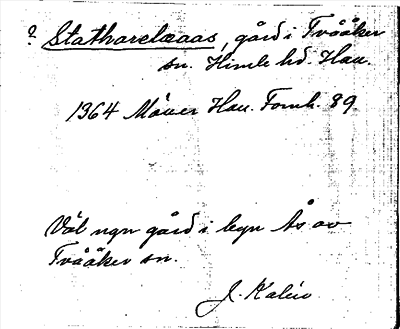 ? Statharelaaas, gård i Tvååker
sn. Himle hd. Hall.
1364 Möller Hall. Fornh. 89.
Väl ngn gård i byn Ås av
Tvååker sn.
J. Kalén